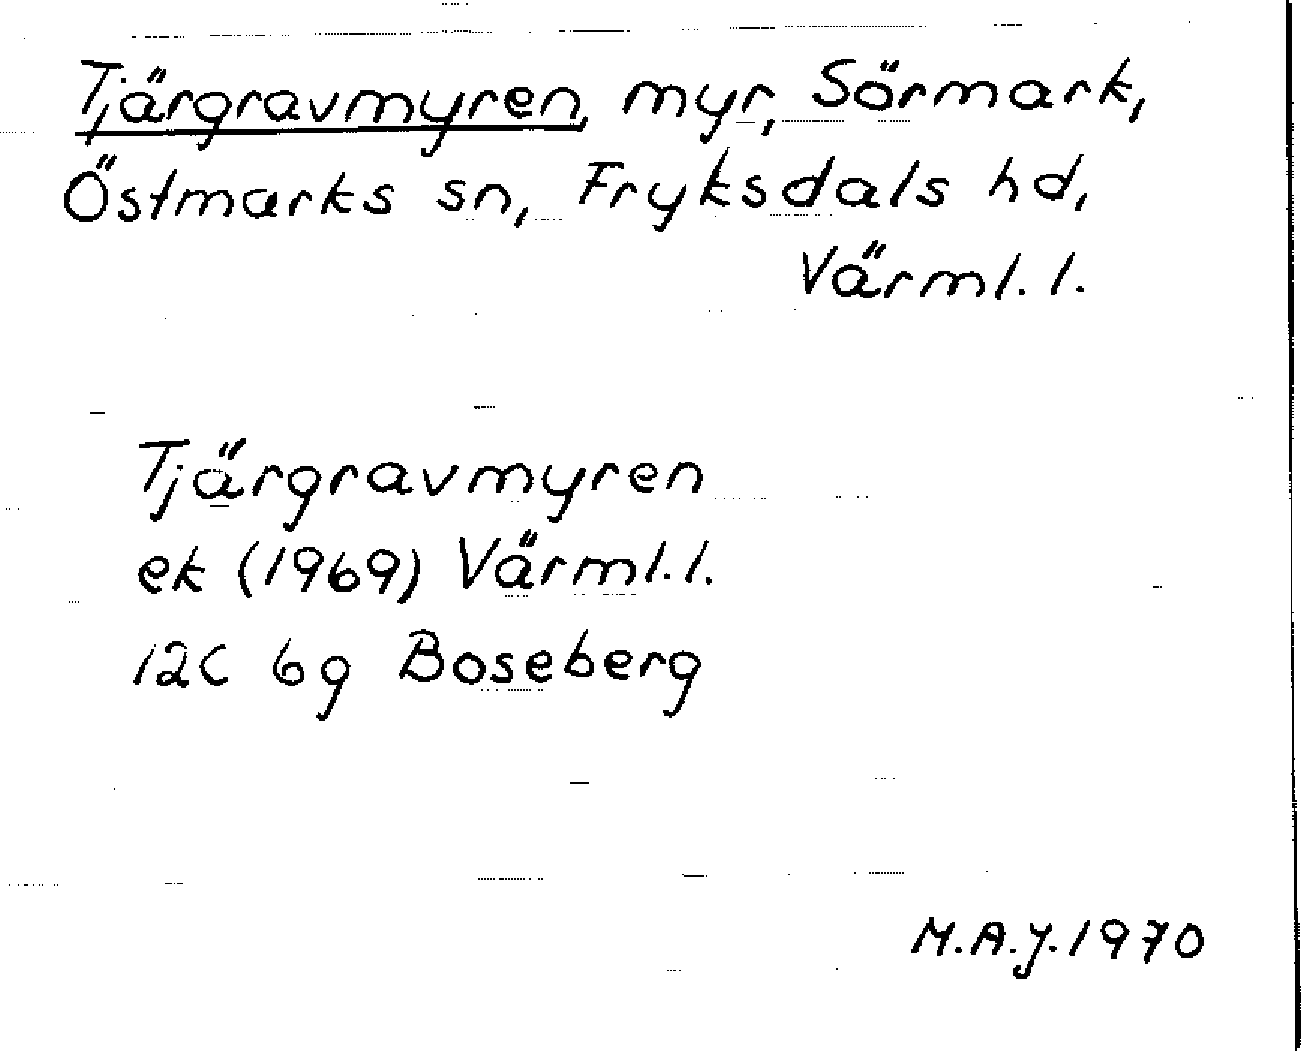 Tjärgravmyren, myr, Sörmark,
Östmarks sn, Fryksdals hd,
Värml. l.
Tjärgravmyren
ek (1969) Värml. l.
12C 6g Boseberg
M.A.J. 1970